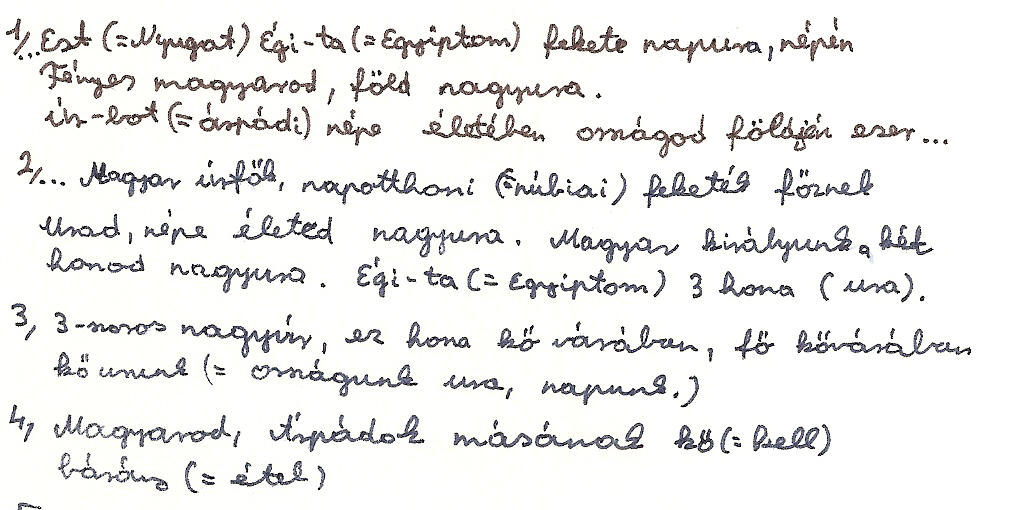 1/... Est (=Nyugat) Égi-ta (=Egyiptom) fekete napura, népén
Fényes magyarod, föld nagyura.
úr-bot (= árpádi) népe életében országod földjén ezer...
2/... Magyar úrfők, napotthoni (=núbiai) feketék főznek
Urad, népe életed nagyura. Magyar királyunk, két
honod nagyura. Égi-ta (= Egyiptom) 3 hona (ura).
3, 3-soros nagyúr, ez hona kő várában, fő kővárában
kő urunk (= országunk ura, napunk.)
4, Magyarod, Árpádok másának kő (= kell)
bárány (= étel)